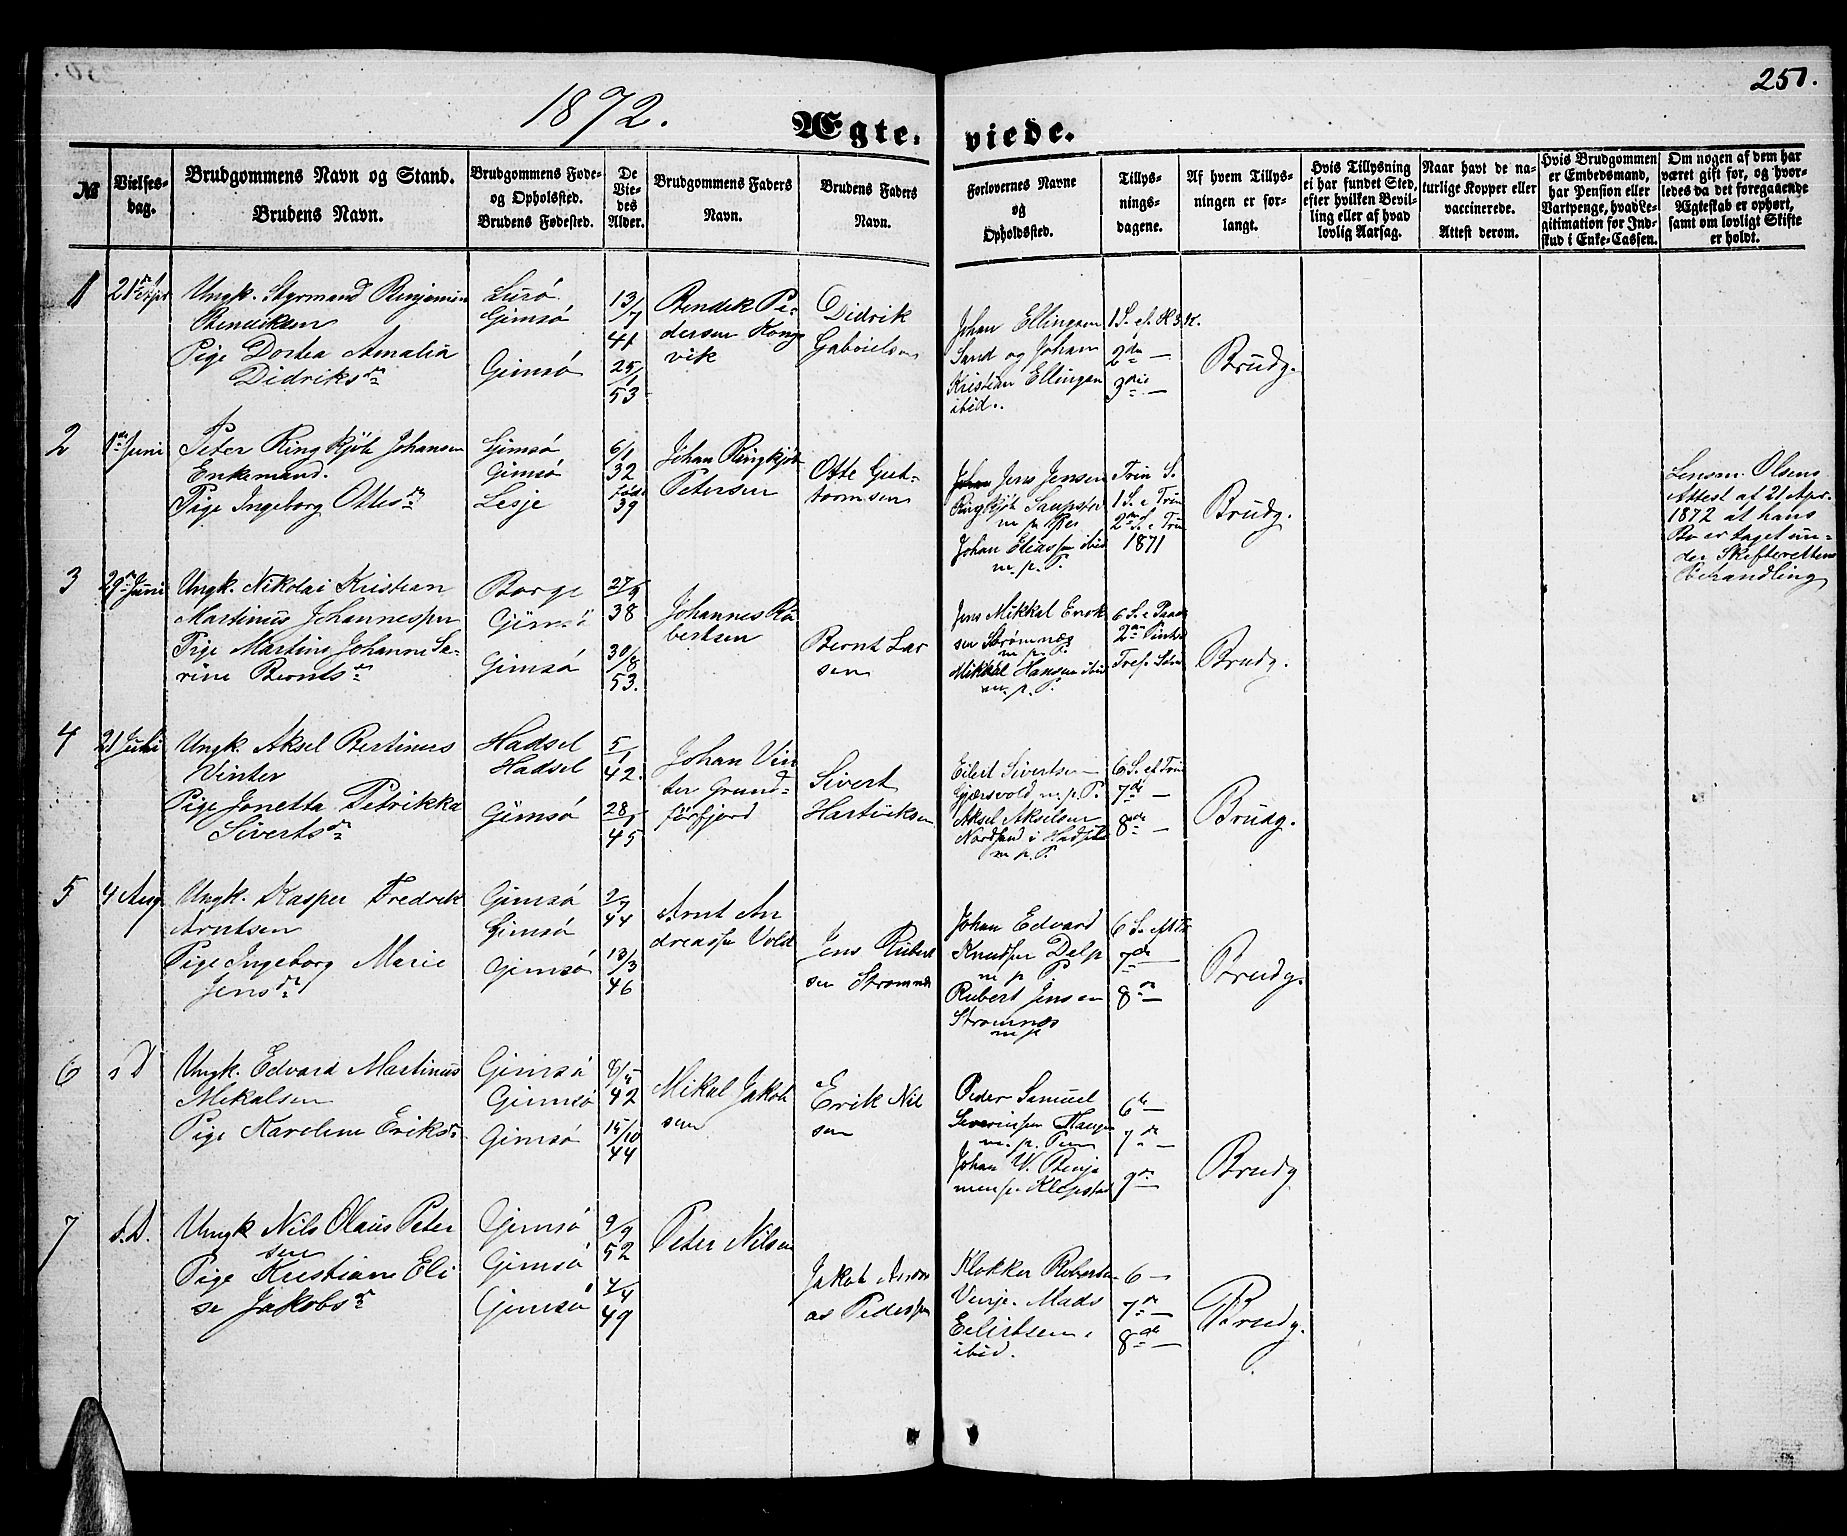 251.
1872.
Ægteviede.
№
Vielses-
dag.
Brudgommens Navn og Stand.
Brudens Navn.
Brudgommens Føde-
og Opholdsted.
Brudens Fødested.
De
Vie-
des
Alder.
Brudgommens Faders
Navn.
Brudens Faders
Navn.
Forlovernes Navne
og
Opholdsted.
Tillys-
nings-
dagene.
Af hvem Tillys-
ningen er for-
langt.
Hvis Tillysning
ei har fundet Sted,
efter hvilken Bevil-
ling eller af hvad
lovlig Aarsag.
Naar havt de na-
turlige Kopper eller
vaccinerede.
Attest derom.
Hvis Brudgommen
er Embedsmand,
har Pension eller
Vartpenge, hvad Le-
gitimation for Ind-
skud i Enke-Cassen.
Om nogen af dem har
været gift før, og hvor-
ledes da det foregaaende
Ægteskab er ophørt,
samt om lovligt Skifte
er holdt.
1
21de Apr
Ungk. Styrmand Benjamin
Bendiksen
Pige Dortea Amalia
Didriksdr
Lurø
Gimsø
Gimsø
13/7
41
25/1
53
Bendik Pe-
dersen Kongs
vik
Didrik
Gabrielsen
Johan Ellingsen
Sand og Johan
Kristian Ellingsen
ibid.
1 S. ef. H 3 K.
2den —
3die —
Brudg.
2
1ste Juni
Peter Ringkjøb Johansen
Enkemand.
Pige Ingeborg Ottesdr
Gimsø
Gimsø
Lesje
6/1
32
født
39
Johan Ringkjøb
Petersen
Otte Gut-
tormsen
Jens Jensen
Ringkjøb Saupstad
m. p. P.
Johan Eliassen ibid
m. p. P.
Trin S.
1 S. e Trin
2den S. e Trin
1871
Brudg.
Lensm. Olsens
Attest af 21 Apr.
1872 at hans
Bo er taget un-
der Skifterettens
Behandling
3
29de Juni
Ungk. Nikolai Kristian
Martinus Johannessen
Pige Martine Johanne Sa-
rine Berntsdr
Borge
Gimsø
Gimsø
27/9
38
30/8
53.
Johannes Ro
bertsen
Bernt Lar
sen
Jens Mikkal Erik
sen Strømnæs
m. p. P.
Mikkal Hansen ibid
m. p. P.
6 S. e Paaske
2den Pintsed
Tref. Søn
Brudg.
4
21 Juli
Ungk. Aksel Bertinus
Winter
Pige Jonetta Petrikka
Sivertsdr
Hadsel
Hadsel
Gimsø
5/1
42.
28/1
45
Johan Vin
ter Grund-
førfjord
Sivert
Hartviksen
Eilert Sivertsen
Gjærsvold m. p. P.
Aksel Akselsen
Nordsand i Hadsel
m. p. P.
6 S. ef Trin
7de —
8de —
Brudg.
5
4 Aug
Ungk. Kasper Fredrik
Arntsen
Pige Ingeborg Marie
Jensdr
Gimsø
Gimsø
Gimsø
2/7
44
13/3
46
Arnt An
dreassen Vold
Jens Rubert
sen Strømnæs
Johan Edvard
Knudsen Dalp
m. p. P.
Rubert Jensen
Strømnæs
m. p
6 S. eft Tr
7de —
8de —
Brudg.
6
s D
Ungk. Edvard Martinus
Mikalsen
Pige Karoline Eriksdr
Gimsø
Gimsø
Gimsø
42
15/10
44
Mikal Jakob
sen
Erik Nil
sen
Peder Samuel
Severinsen Hauge
m. p. Pen
Johan W. Benja
mensen Klepstad
6te —
7de —
Brudg
7
s. D.
Ungk Nils Olaus Peter
sen
Pige Kristiane Eli
se Jakobsdr
Gimsø
Gimsø
Gimsø
9/9
52
49
Peter Nilsen
Jakob Andre
as Pedersen
Klokker Robertsen
Venje. Mads
Eilertsen
ibid.
6 —
7de —
8de —
Brudg.